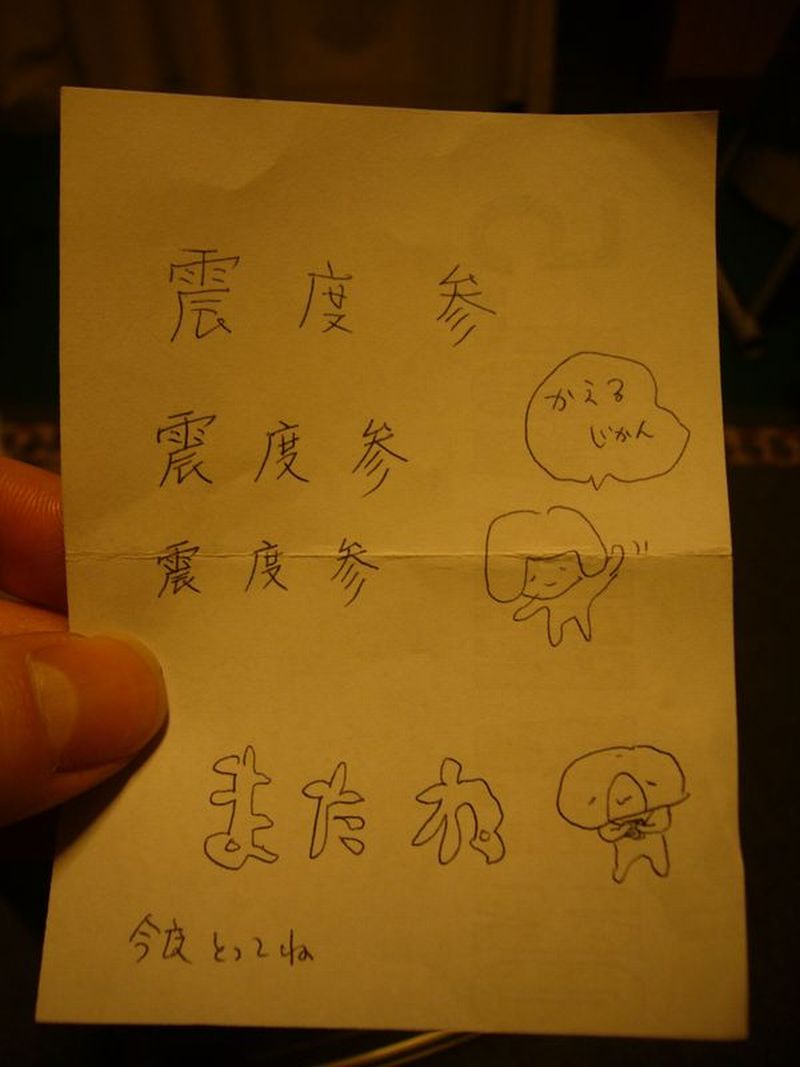 震度参
かえる
じかん
震度参
震度参
またね
今度とってね